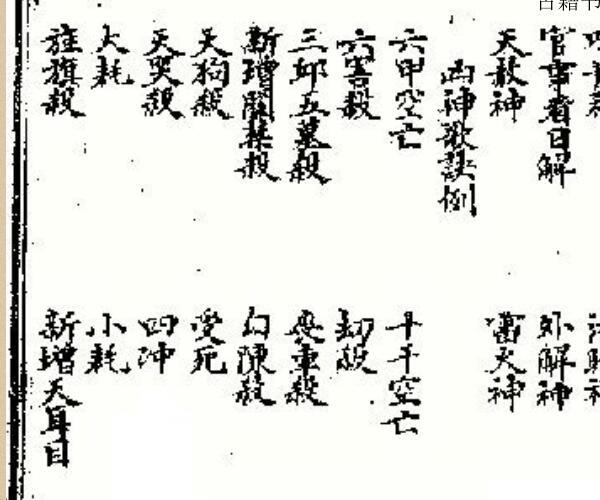 官事看日解
外解神
天赦神
雷火神
凶神歌訣例
六甲空亡
十干空亡
六害殺
劫殺
三邱五墓殺
喪車殺
新增關鎖殺
勾陳殺
天狗殺
受死
天哭殺
四冲
大耗
小耗
旌旗殺
新增天耳目